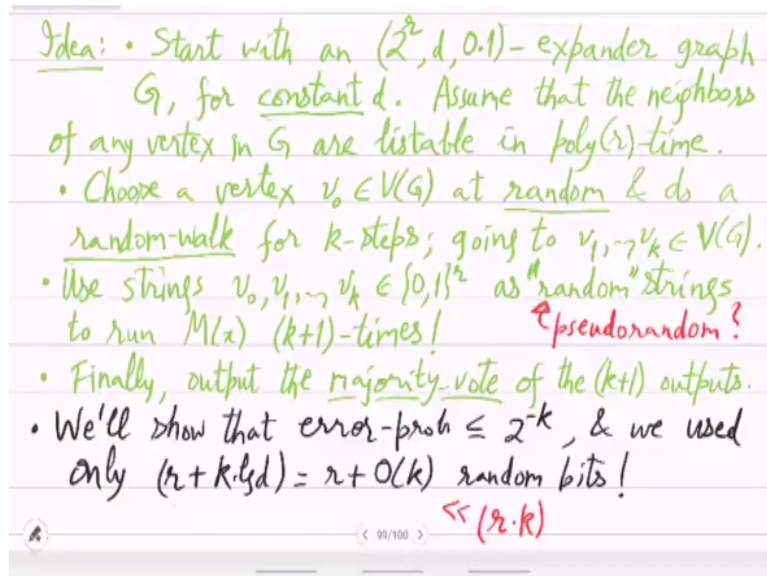 Idea: • Start with an (2^r, d, 0.1) - expander graph
G, for constant d. Assume that the neighbors
of any vertex in G are listable in poly(r)-time.
• Choose a vertex v₀ ∈ V(G) at random & do a
random-walk for k-steps; going to v₁,..,v_k ∈ V(G).
• Use strings v₀,v₁,..,v_k ∈ {0,1}^r as "random" strings
to run M(x) (k+1)-times!
↑pseudorandom?
• Finally, output the majority-vote of the (k+1) outputs.
• We'll show that error-prob ≤ 2^-k, & we used
only (r+k.lgd) = r+O(k) random bits!
<< (r.k)
< 99/100 >